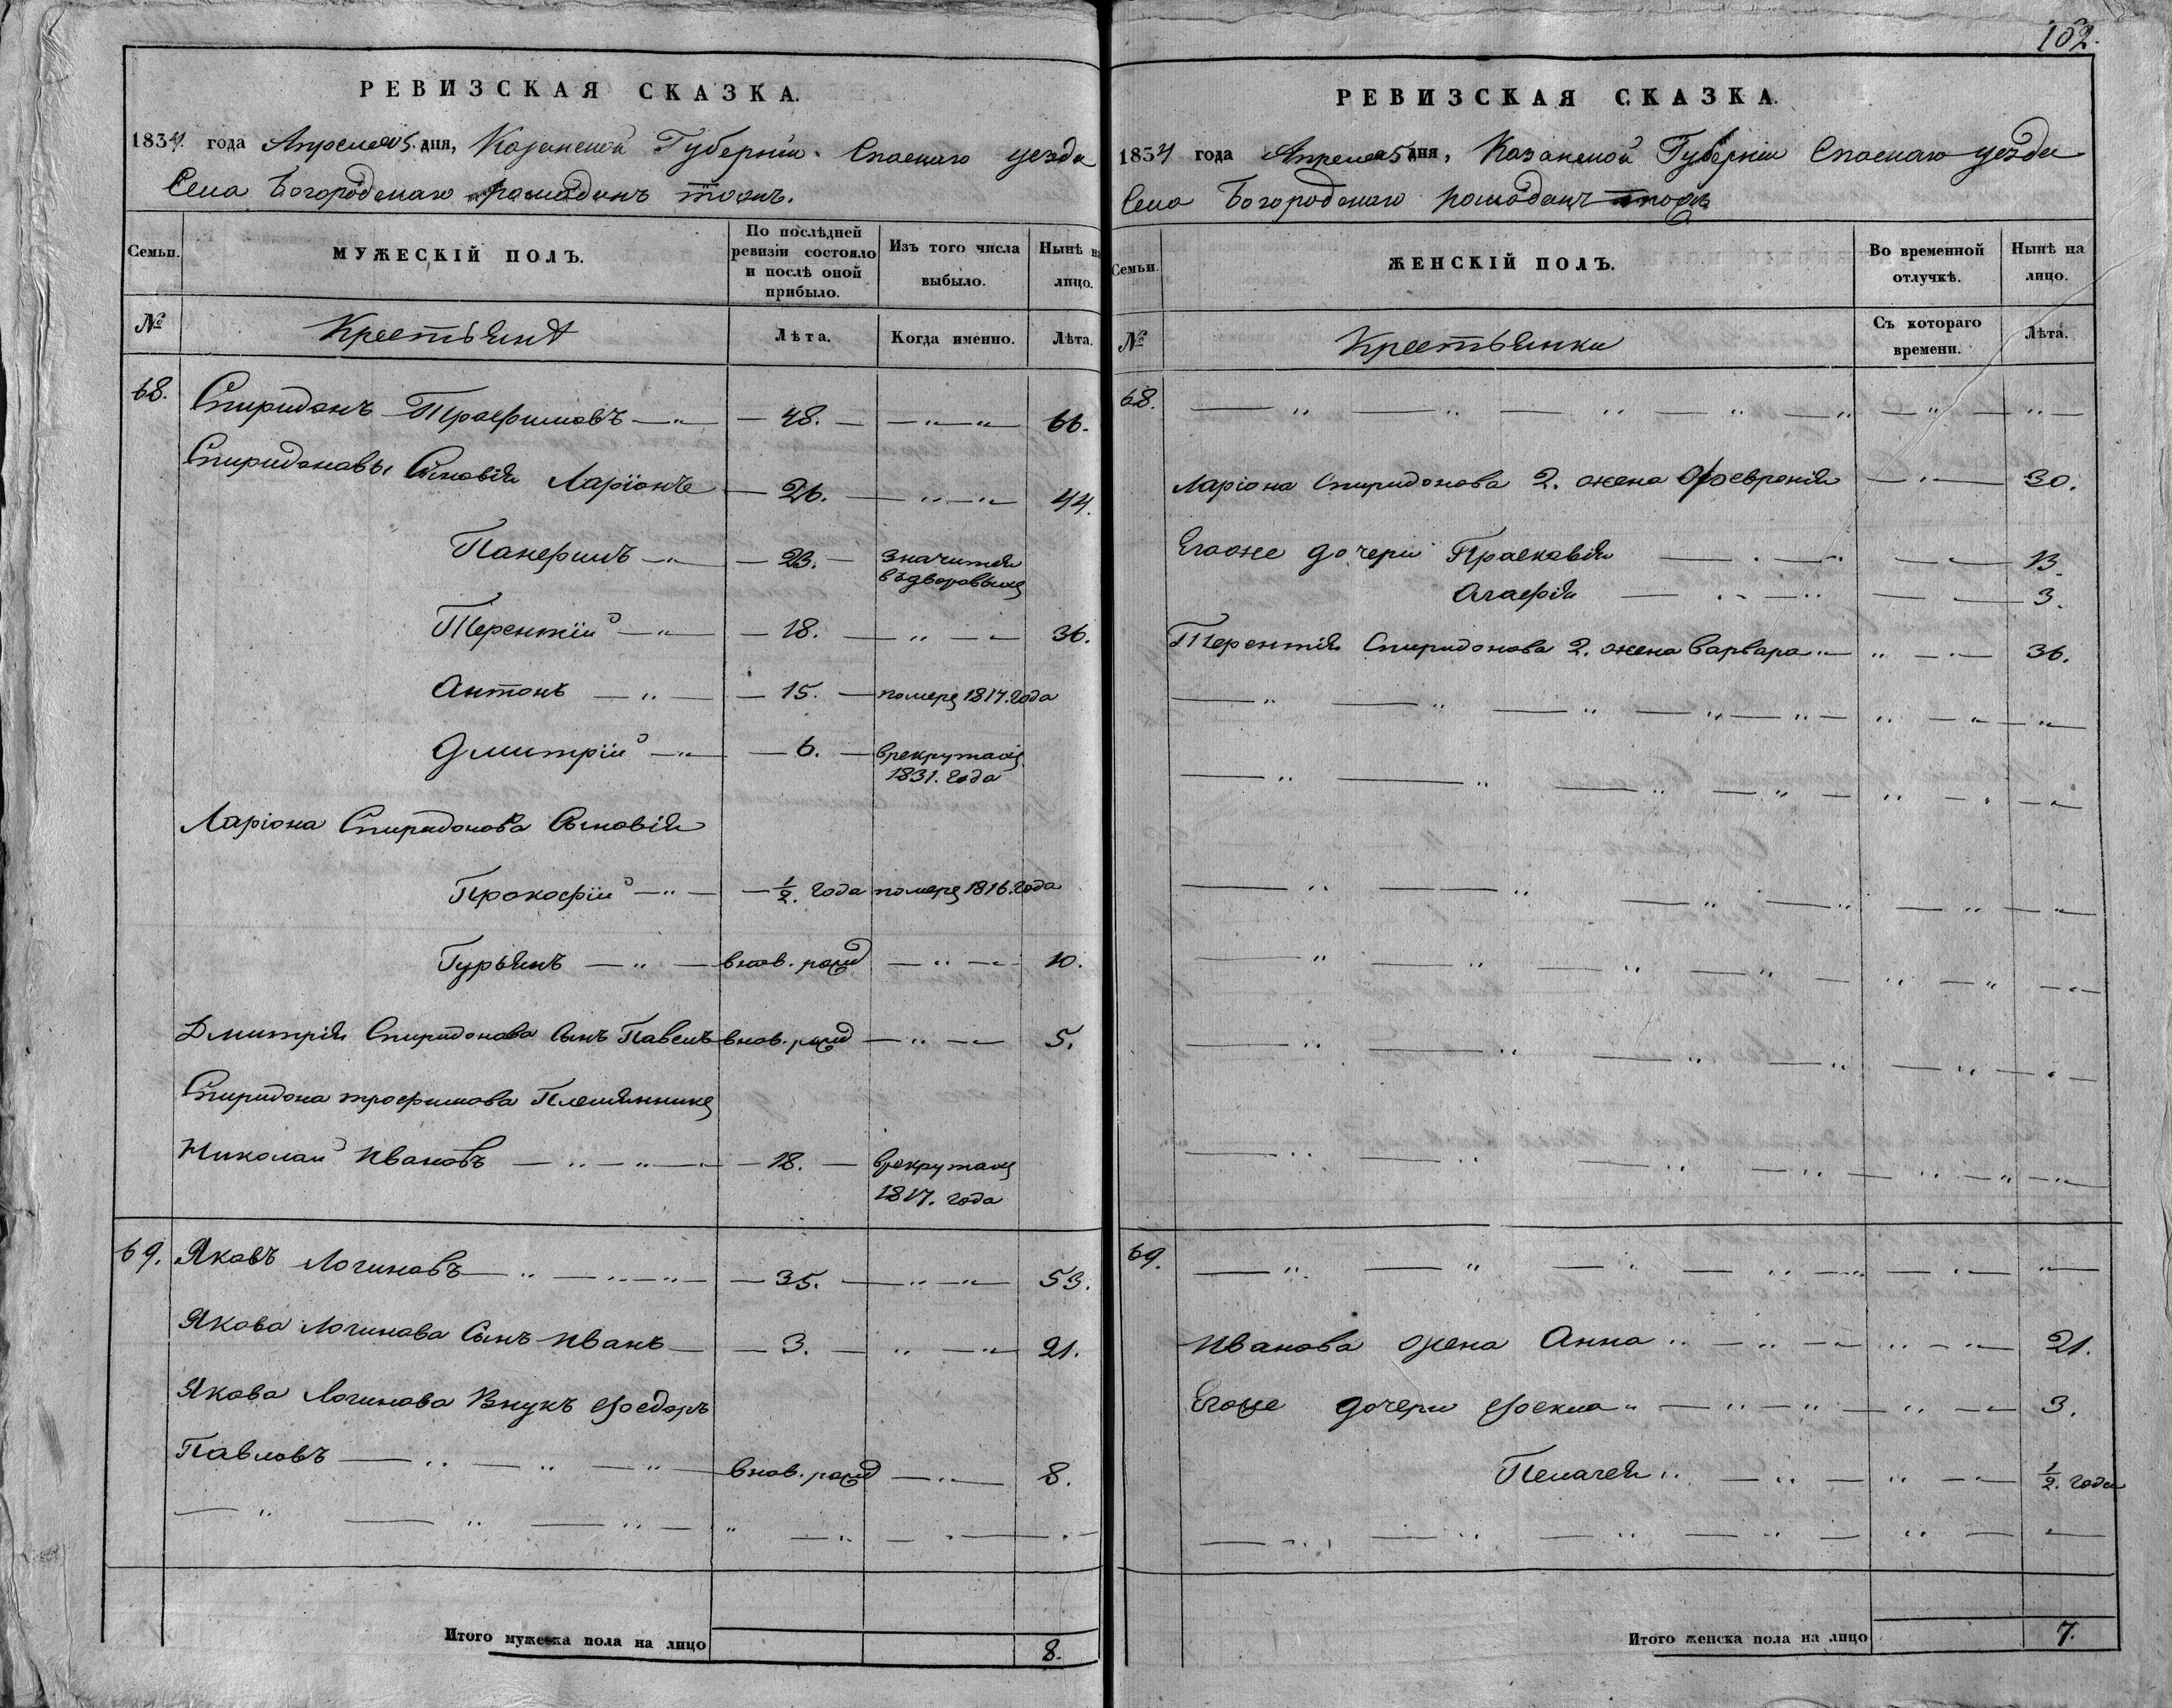 РЕВИЗСКАЯ СКАЗКА.
1834. года Апреля 5. дня, Казанской Губернiи Спаскаго уезда
Села Богородскаго рамадань тожъ.
Семьи.
МУЖЕСКIЙ ПОЛЪ.
По послѣдней ревизiи состояло и послѣ оной прибыло.
Изъ того числа выбыло.
Нынѣ на лицо.
№
Крестьянѣ
Лѣта.
Когда именно.
Лѣта.
68.
Спиридонъ Трафимовъ — 48. — 66.
Спиридоновы Сыновiя Ларiонъ — 26. — 44.
Панфилъ — 23. — значится
въ дворовыхъ
Терентiй — 18. — 36.
Антонъ — 15. — померъ 1817. года
Дмитрiй — 6. — врекрутахъ
1831. года
Ларiона Спиридонова Сыновiя
Прокофiй — ½. года померъ 1816. года
Гурьянъ — внов. рожд — 10.
Дмитрiя Спиридонова Сынъ Павелъ внов. рожд — 5.
Спиридона трофимова Племянникъ
Николай Ивановъ — 18. — врекрутахъ
1817. года
69. Яковъ Логиновъ — 35. — 53.
Якова Логинова Сынъ Иванъ — 3. — 21.
Якова Логинова Внукъ Федоръ
Павловъ — внов. рожд — 8.
Итого мужеска пола на лицо 8.
152.
РЕВИЗСКАЯ СКАЗКА.
1834 года Апреля 5 дня, Казанской Губернiи Спаскаго уезда
Села Богородскаго рамаданъ тожъ
Семьи.
ЖЕНСКIЙ ПОЛЪ.
Во временной отлучкѣ.
Нынѣ на лицо.
№
Крестьянки
Съ котораго времени.
Лѣта.
68.
Ларiона Спиридонова 2. жена Февронiя — 30.
Егоже дочери Прасковiя — 13.
Агафiя — 3.
Терентiя Спиридонова 2. жена Варвара — 36.
69.
Иванова жена Анна — 21.
Егоже дочери Фекла — 3.
Пелагея — ½. года
Итого женска пола на лицо 7.